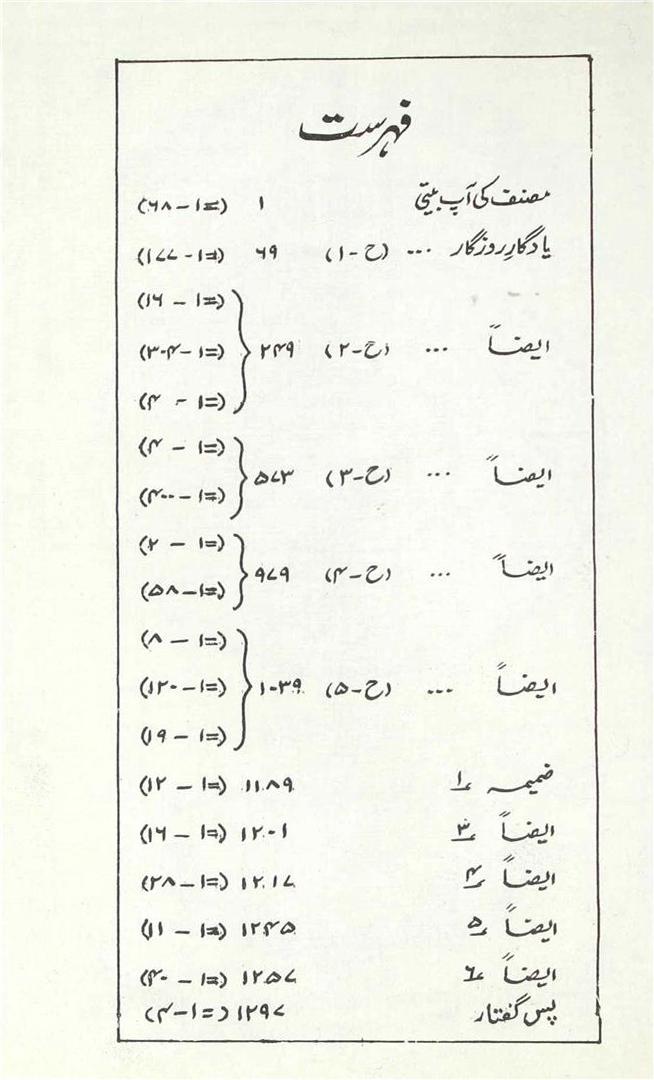 فہرست
مصنف کی آپ بیتی ۱ (=۱ – ۶۸)
یادگارِ روزگار ... (ح-۱) ۶۹ (=۱ - ۱۷۷)
(=۱ – ۱۶)
ایضاً ... (ح-۲) ۲۴۹ (=۱ – ۳۰۴)
(=۱ – ۴)
(=۱ – ۴)
ایضاً ... (ح-۳) ۵۷۳
(=۱ – ۴۰۰)
(=۱ – ۲)
ایضاً ... (ح-۴) ۹۷۹
(=۱ – ۵۸)
(=۱ – ۸)
ایضاً ... (ح-۵) ۱۰۳۹ (=۱ – ۱۲۰)
(=۱ – ۱۹)
ضمیمہ ۱ ۱۱۸۹ (=۱ – ۱۲)
ایضاً ۳ ۱۲۰۱ (=۱ – ۱۶)
ایضاً ۴ ۱۲۱۷ (=۱ – ۲۸)
ایضاً ۵ ۱۲۴۵ (=۱ – ۱۱)
ایضاً ۶ ۱۲۵۷ (=۱ – ۴۰)
پس گفتار ۱۲۹۷ (=۱-۴)